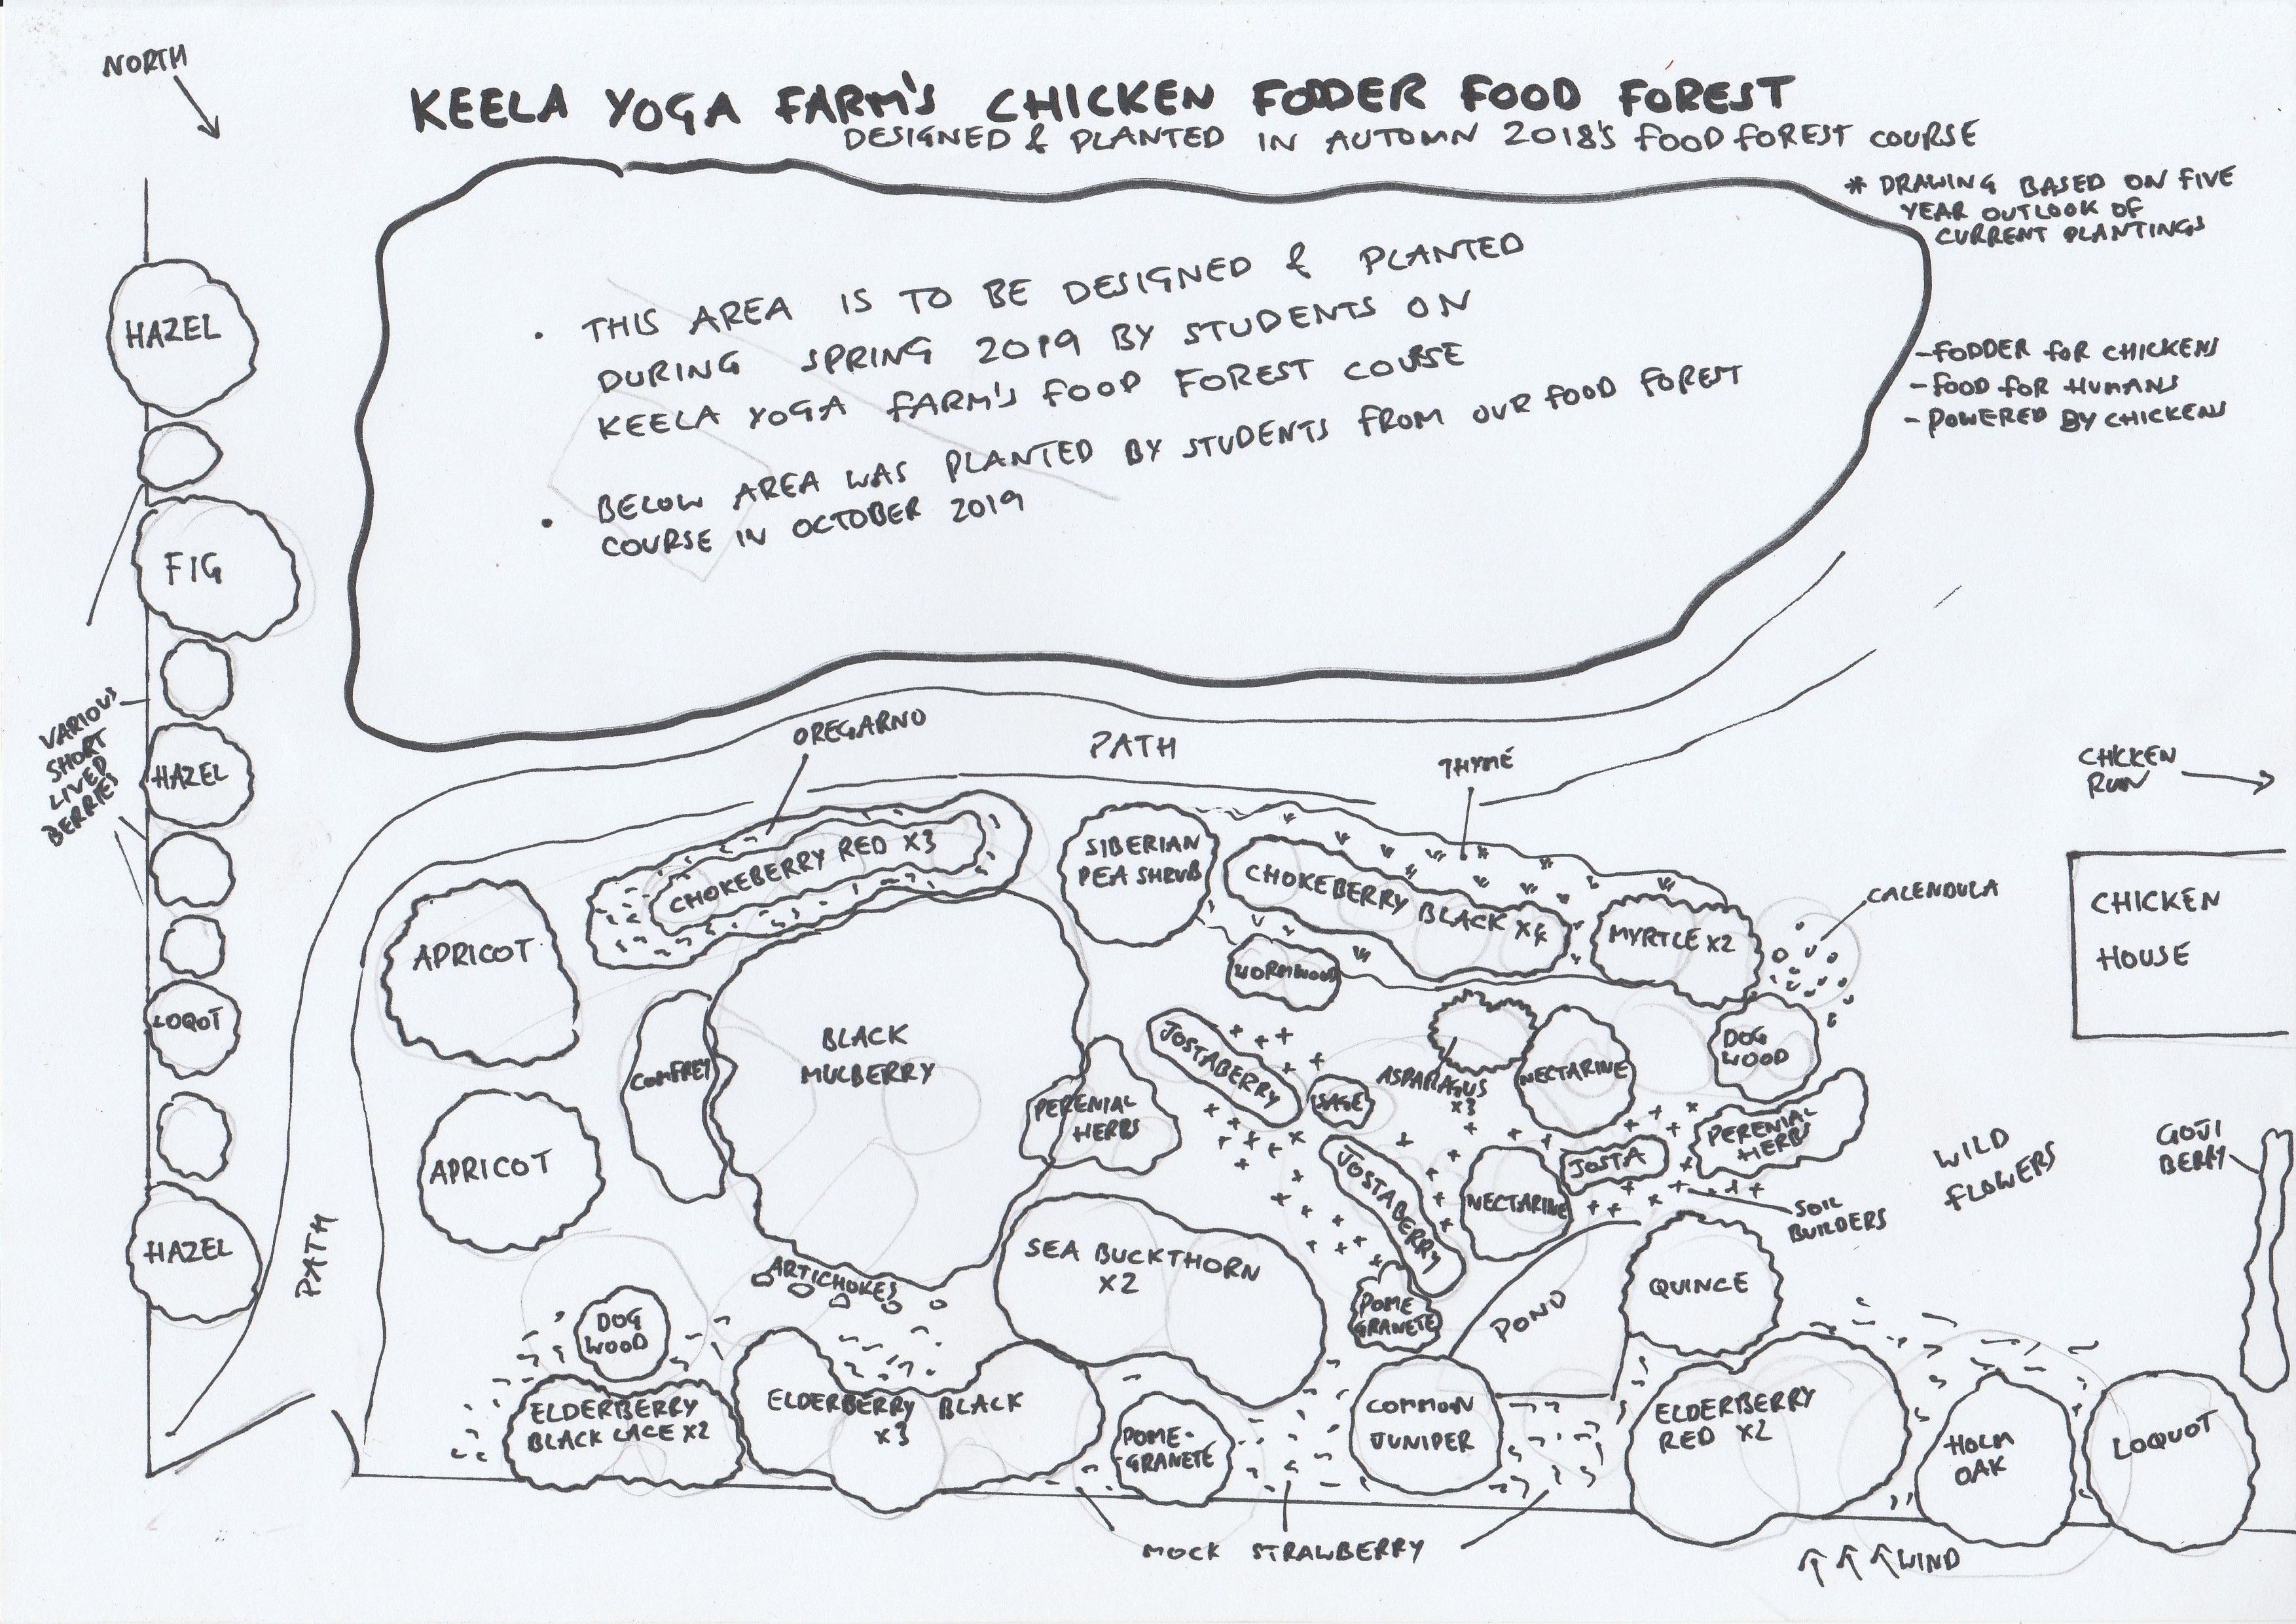 NORTH
KEELA YOGA FARM'S CHICKEN FODDER FOOD FOREST
DESIGNED & PLANTED IN AUTOMN 2018'S FOOD FOREST COURSE
* DRAWING BASED ON FIVE
YEAR OUTLOOK OF
CURRENT PLANTINGS
• THIS AREA IS TO BE DESIGNED & PLANTED
DURING SPRING 2019 BY STUDENTS ON
KEELA YOGA FARM'S FOOD FOREST COURSE
• BELOW AREA WAS PLANTED BY STUDENTS FROM OUR FOOD FOREST
COURSE IN OCTOBER 2019
-FODDER FOR CHICKENS
-FOOD FOR HUMANS
-POWERED BY CHICKENS
HAZEL
FIG
VARIOUS
SHORT
LIVED
BERRIES
HAZEL
LOQOT
HAZEL
PATH
OREGARNO
PATH
THYME
CHICKEN
RUN
CHOKEBERRY RED X3
SIBERIAN
PEA SHRUB
CHOKEBERRY BLACK X4
MYRTLE X2
CALENDULA
CHICKEN
HOUSE
APRICOT
WORMWOOD
BLACK
MULBERRY
COMFREY
JOSTABERRY
SAGE
ASPARAGUS
X3
NECTARINE
DOG
WOOD
PERENIAL
HERBS
PERENIAL
HERBS
WILD
FLOWERS
GOJI
BERRY
APRICOT
JOSTABERRY
NECTARINE
JOSTA
SOIL
BUILDERS
SEA BUCKTHORN
X2
ARTICHOKES
POME
GRANETE
POND
QUINCE
DOG
WOOD
ELDERBERRY
BLACK LACE X2
ELDERBERRY BLACK
X3
POME-
GRANETE
COMMON
JUNIPER
ELDERBERRY
RED X2
HOLM
OAK
LOQUOT
MOCK STRAWBERRY
WIND